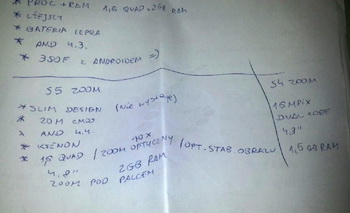 * PROC + RAM 1,6 QUAD . 2GB RAM
* LŻEJSZY
* BATERIA LEPSZA
* AND 4.3.
* 350F Z ANDROIDEM =)
S5 ZOOM
* SLIM DESIGN (NIE WYSTAJE)
* 20M CMOS
* AND 4.4
* KSENON
* 1,6 QUAD / 10X ZOOM OPTYCZNY / OPT. STAB OBRAZU
4.8" 2GB RAM
ZOOM POD PALCEM
S4 ZOOM
16 MPIX
DUAL CORE
4.3"
1,5 GB RAM